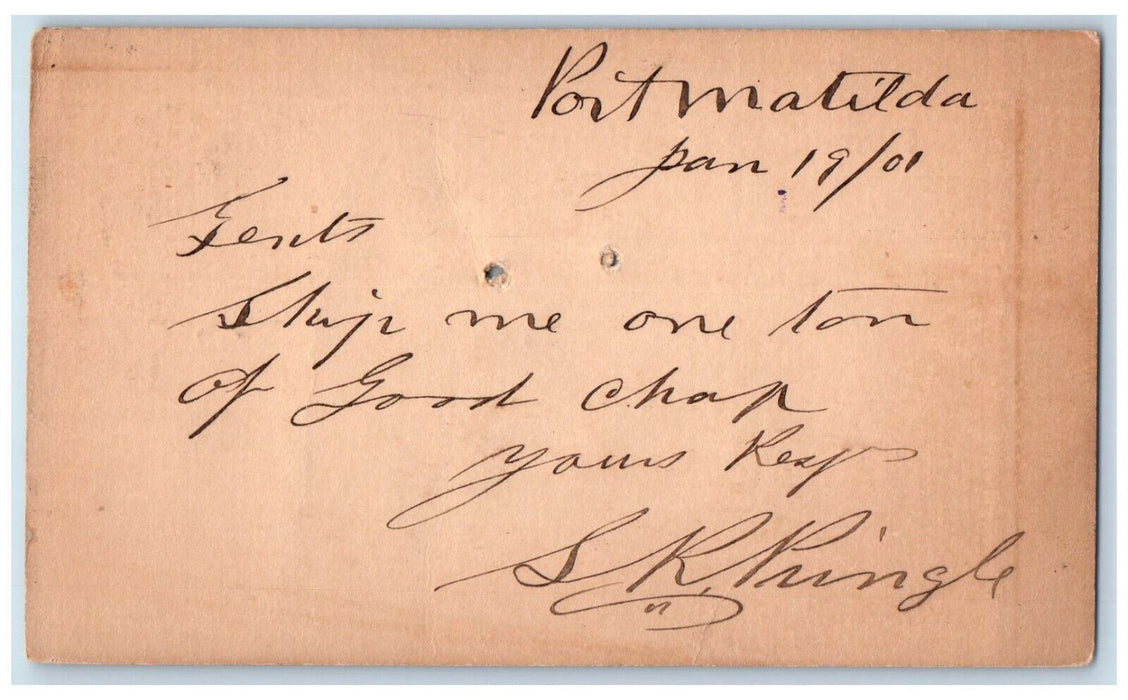 Port Matilda
Jan 19/01
Gents
Ship me one ton
of Good Chop
yours Resp
S. R. Pringle